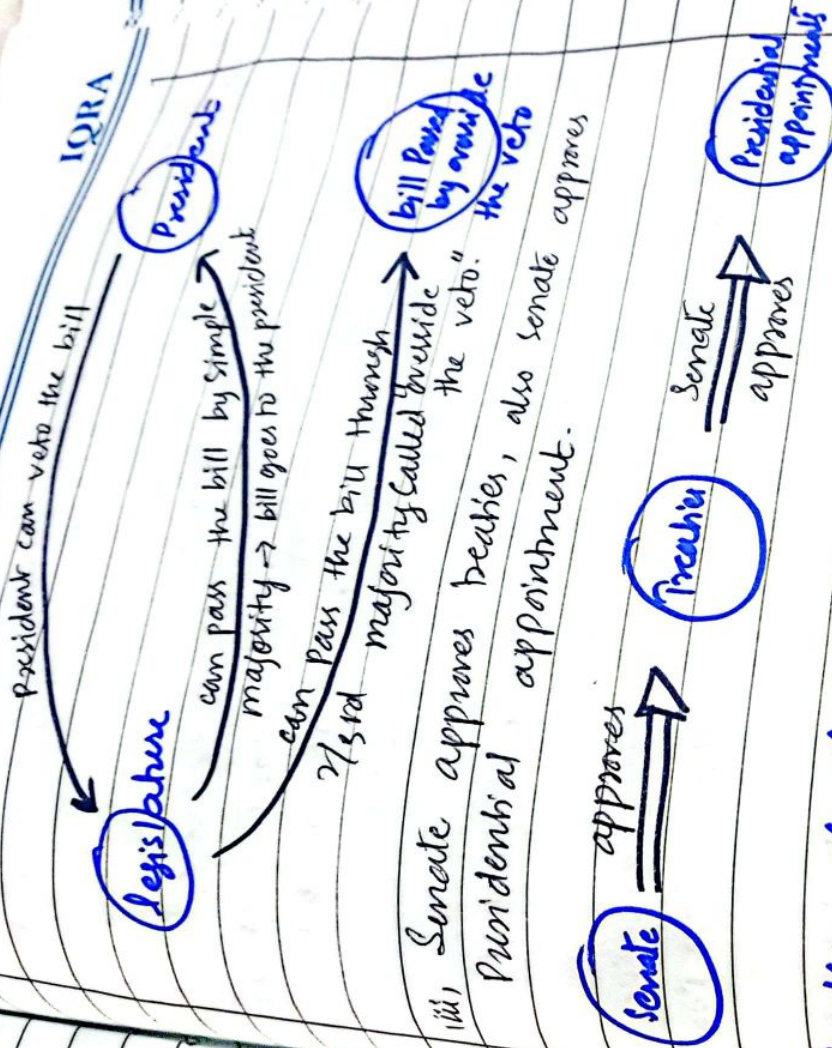 IQRA
president can veto the bill
President
legislature
can pass the bill by simple
majority → bill goes to the president
can pass the bill through
2/3rd majority called "override
the veto."
bill Passed
by override
the veto
iii, Senate approves treaties, also senate approves
Presidential appointment.
Senate
approves
Treaties
Senate
approves
Presidential
appointments